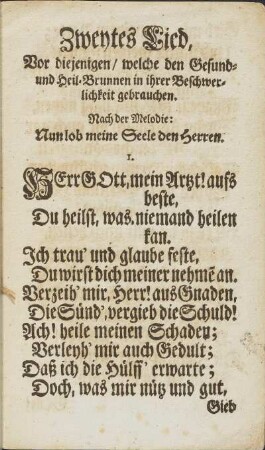 Zweytes Lied,
Vor diejenigen/ welche den Gesund-
und Heil-Brunnen in ihrer Beschwer-
lichkeit gebrauchen.
Nach der Melodie:
Nun lob meine Seele den Herren.
1.
HErr GOtt, mein Artzt! aufs
beste,
Du heilst, was niemand heilen
kan.
Ich trau' und glaube feste,
Du wirst dich meiner nehmē an.
Verzeih' mir, Herr! aus Gnaden,
Die Sünd', vergieb die Schuld!
Ach! heile meinen Schaden;
Verleyh' mir auch Gedult;
Daß ich die Hülff' erwarte;
Doch, was mir nütz und gut,
Gieb